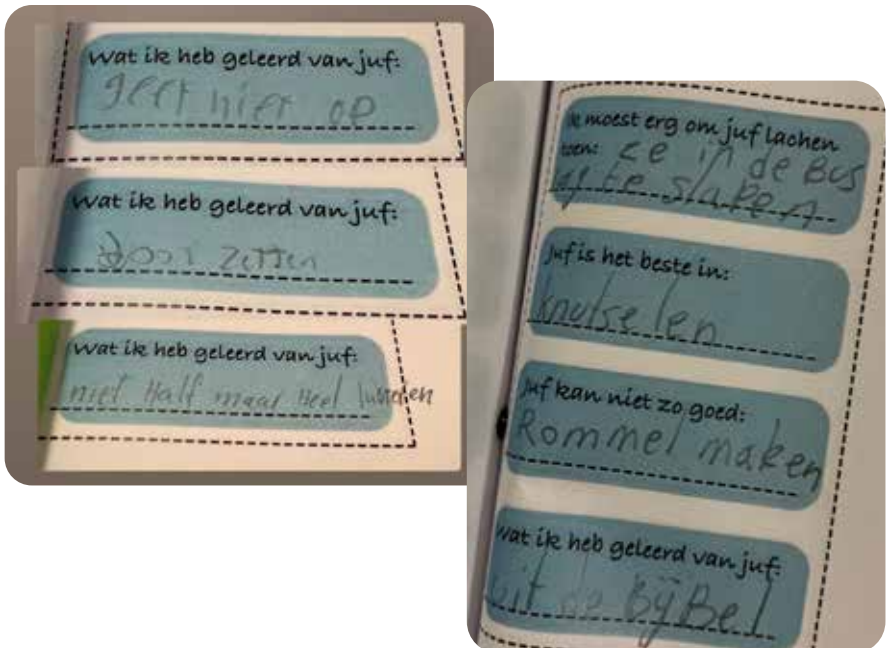 Wat ik heb geleerd van juf:
geef niet op
Wat ik heb geleerd van juf:
Door zetten
Wat ik heb geleerd van juf:
niet Half maar Heel luisteren
Ik moest erg om juf lachen
toen: ze in de Bus
te slapen
Juf is het beste in:
knutselen
Juf kan niet zo goed:
Rommel maken
Wat ik heb geleerd van juf:
uit de BijBel